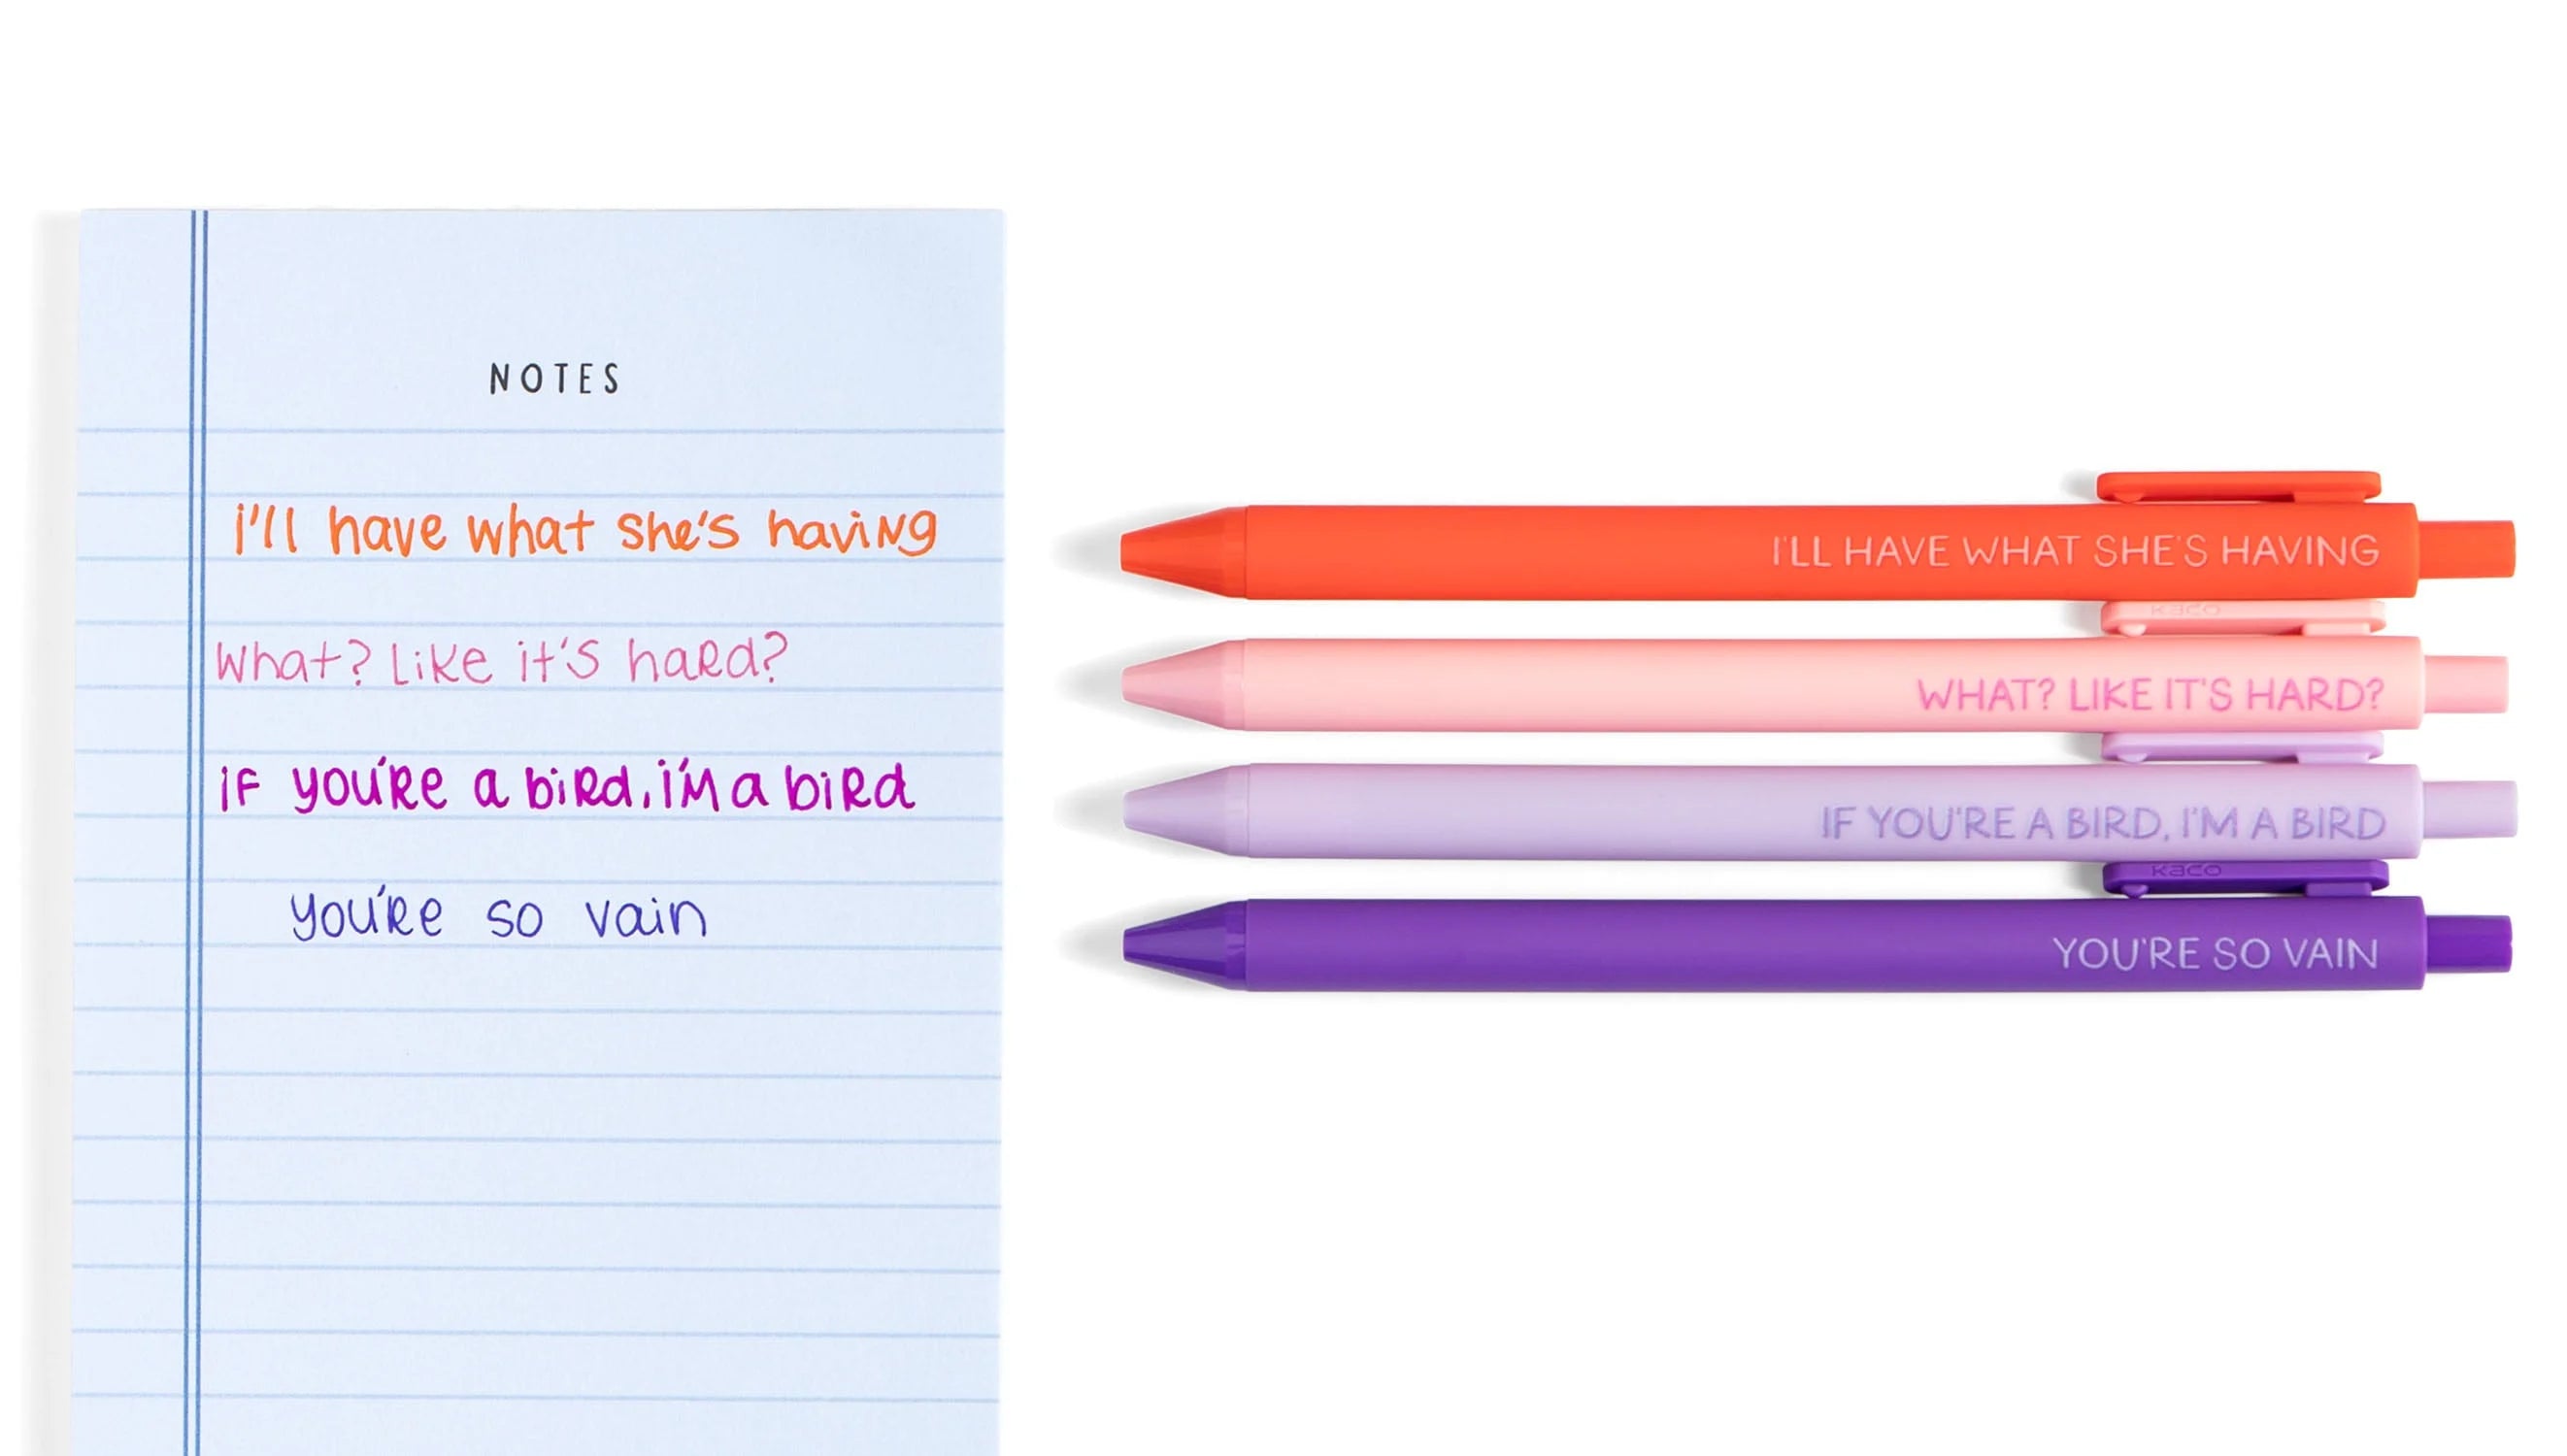 NOTES
i'll have what she's having
What? Like it's hard?
iF you're a bird, i'm a bird
you're so vain
I'LL HAVE WHAT SHE'S HAVING
KACO
WHAT? LIKE IT'S HARD?
IF YOU'RE A BIRD, I'M A BIRD
KACO
YOU'RE SO VAIN